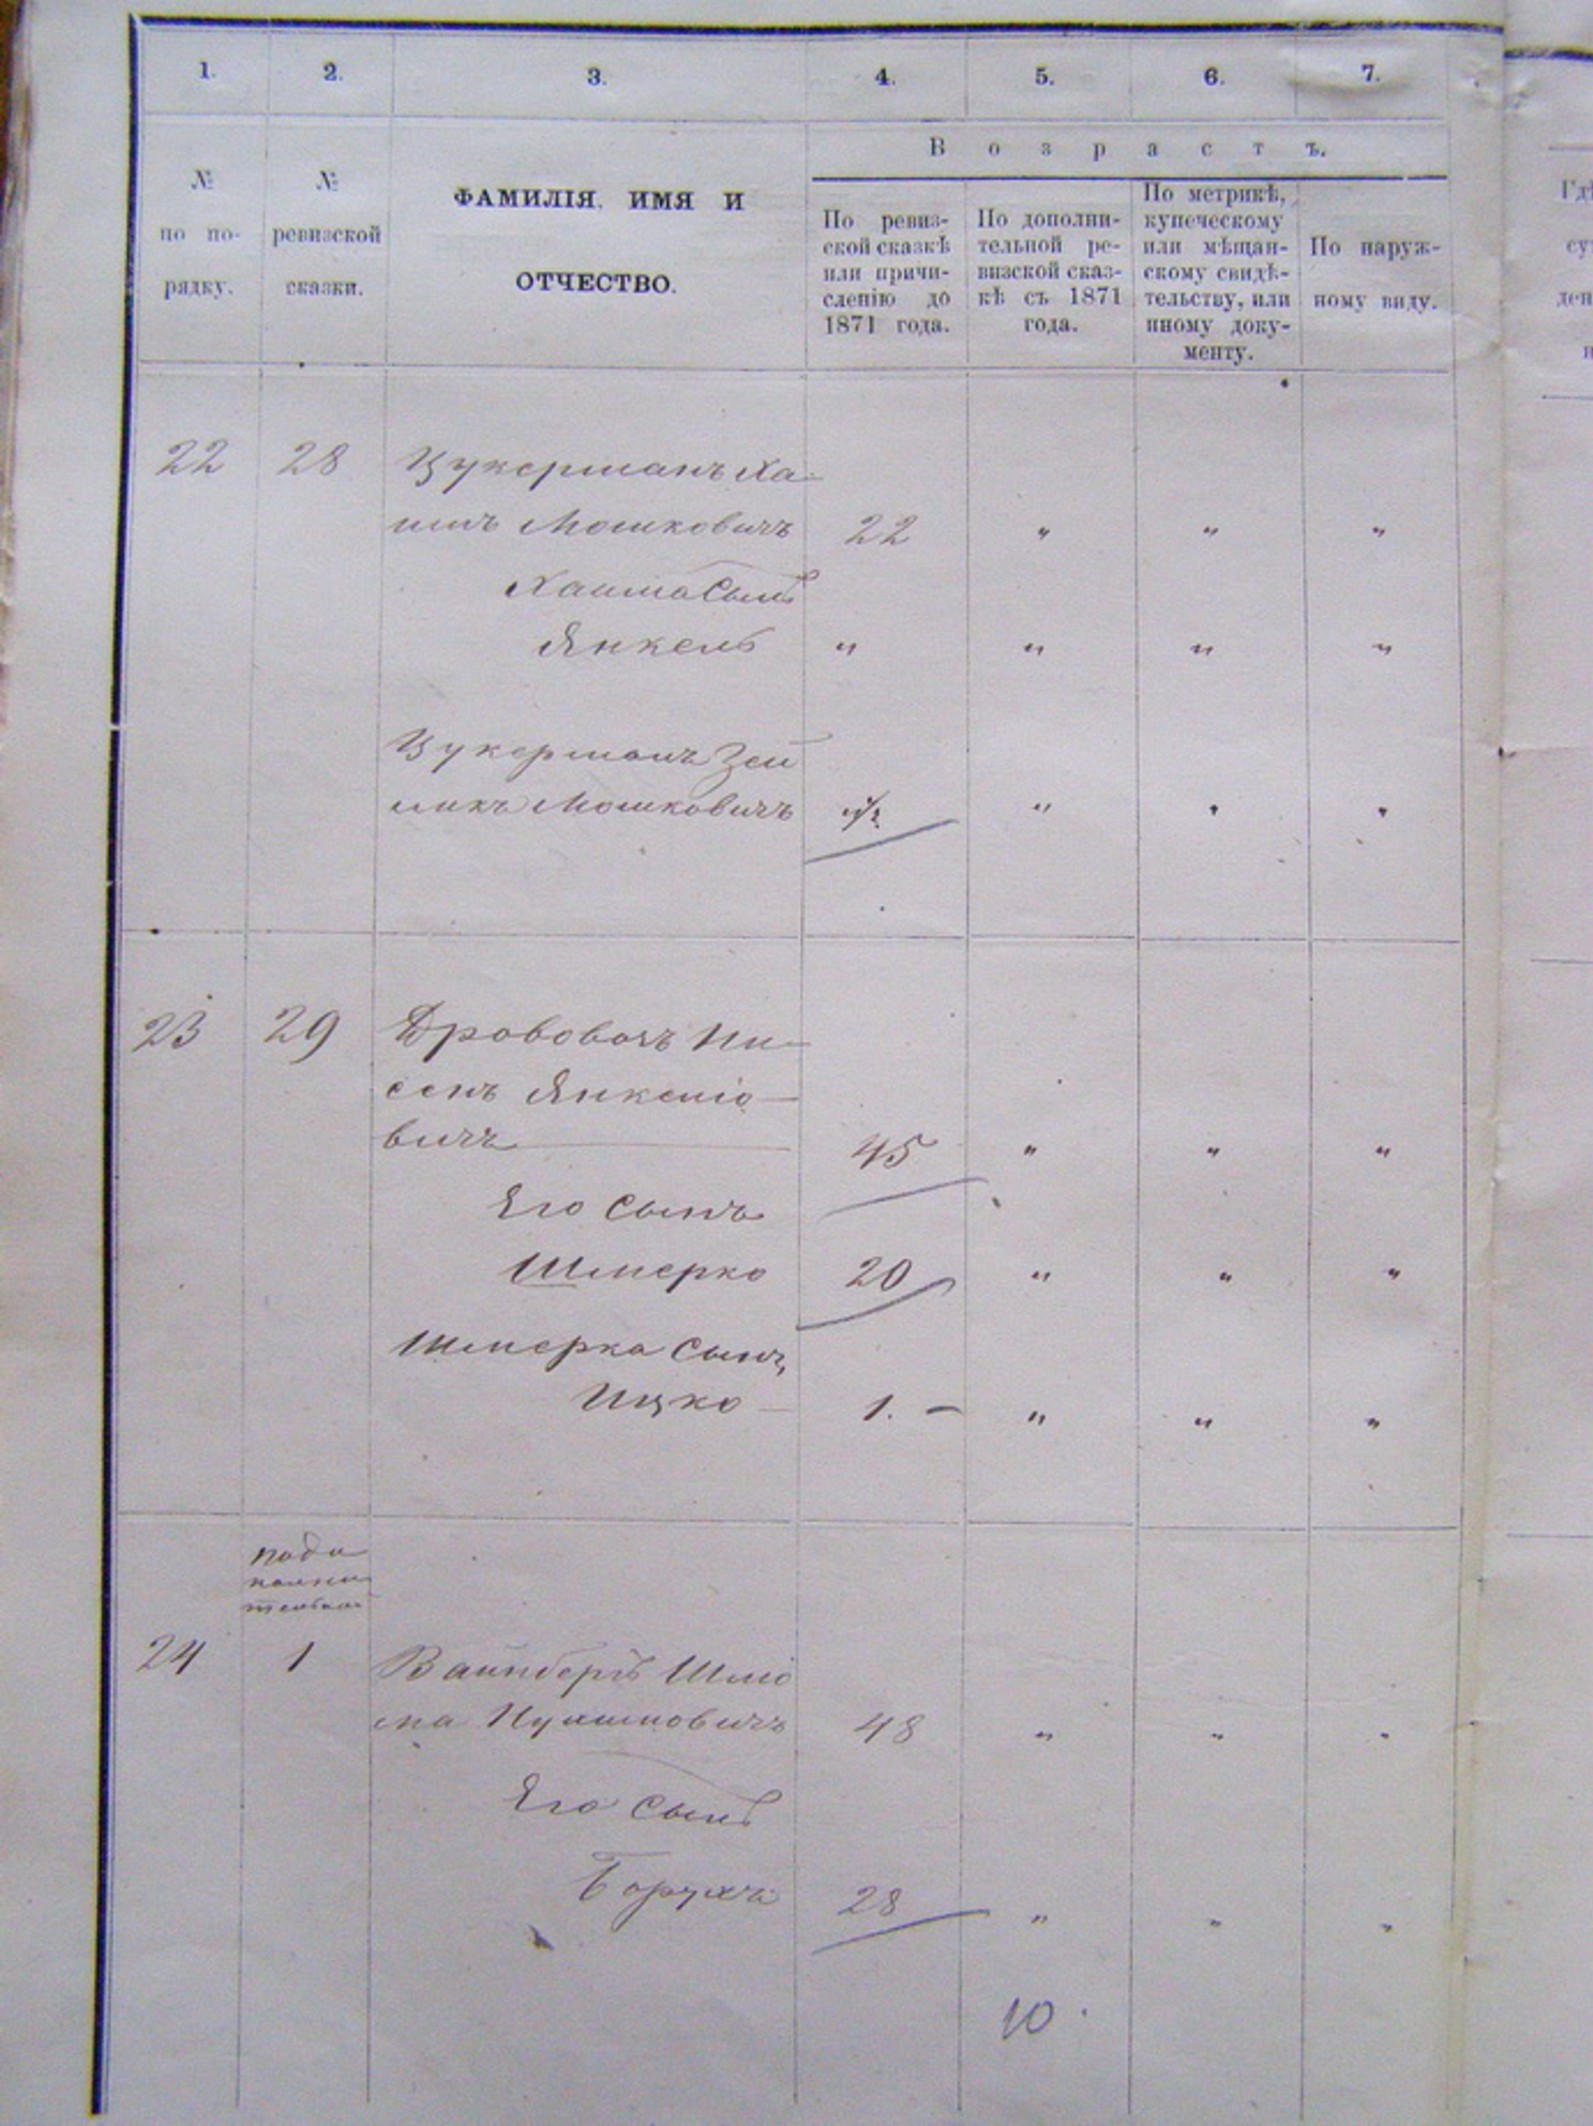 1. 2. 3. 4. 5. 6. 7.
№
по по-
рядку.
№
ревизской
сказки.
ФАМИЛІЯ, ИМЯ И
ОТЧЕСТВО.
Возрастъ.
По ревиз-
ской сказкѣ
или причи-
сленію до
1871 года.
По дополни-
тельной ре-
визской сказ-
кѣ съ 1871
года.
По метрикѣ,
купеческому
или мѣщан-
скому свидѣ-
тельству, или
иному доку-
менту.
По наруж-
ному виду.
22 28 Цукерманъ Ха-
имъ Мошковичъ 22 " " "
Хаима сынъ
Янкель " " " "
Цукерманъ Зей
ликъ Мошковичъ 1/2 " " "
23 29 Дрововозъ Ни-
сенъ Янкеліо-
вичъ 45 " " "
Его сынъ
Шмерко 20 " " "
Шмерка сынъ
Ицко 1. — " " "
подо
полни
тельной
24 1 Вайнбергъ Шліо
ма 48 " " "
Его сынъ
Борухъ 28 " " "
10